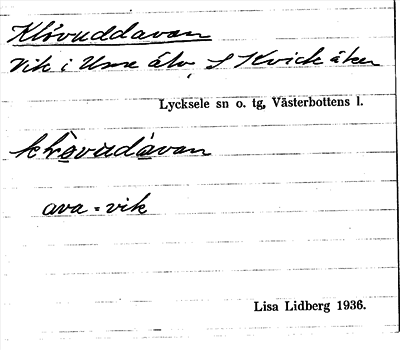 Klövuddavan
Vik i Ume älv, S Kvickåker
Lycksele sn o. tg, Västerbottens l.
ava = vik
Lisa Lidberg 1936.